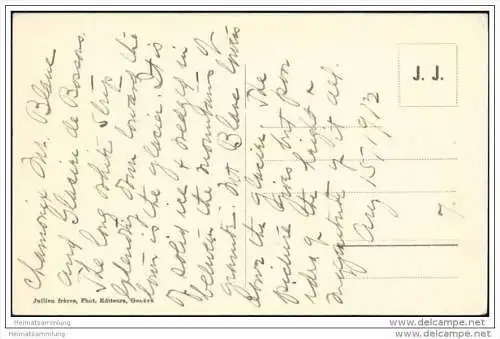 Chamonix Mt. Blanc
and Glacier de Bossons.
The long white strip
extending down toward the
town is the glacier. It is
of solid ice & wedges in
between the mountains of
granite. Mt Blanc towers
down the glacier. The
picture gives but poor
idea of the height &
magnitude of it all.
Aug 15, 1912
7.
J. J.
Jullien frères, Phot. Editeurs, Genève
Heimatsammlung
Heimatsammlung
www.heimatsammlung.de
www.heimatsammlung.de